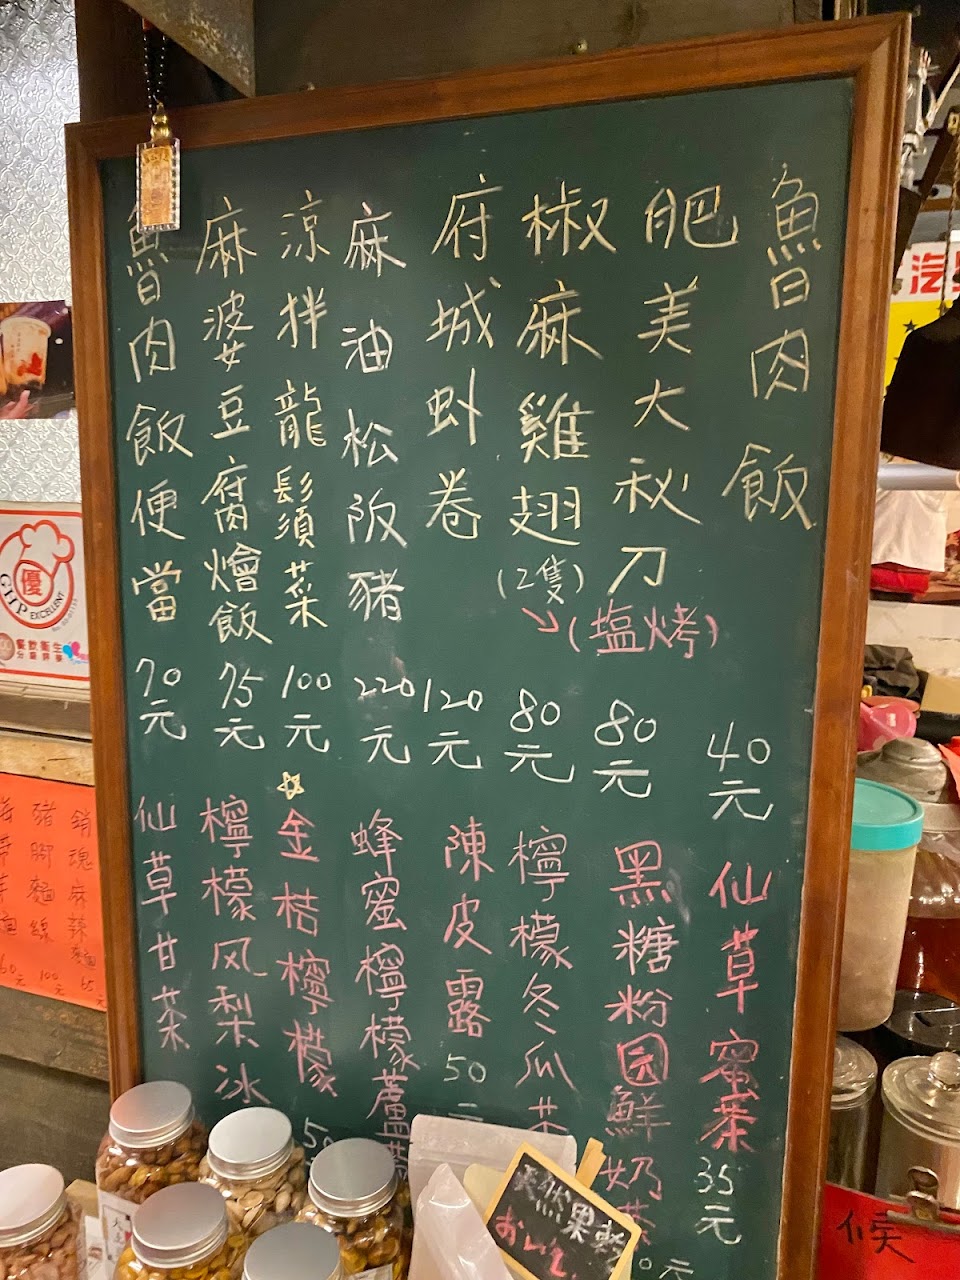 魯肉飯
40元
肥美大秋刀
(塩烤)
80元
椒麻雞翅
(2隻)
80元
府城蚪卷
120元
麻油松阪豬
220元
涼拌龍鬚菜
100元
麻婆豆腐燴飯
75元
魯肉飯便當
70元
仙草蜜茶
35元
黑糖粉圓鮮奶茶
元
檸檬冬瓜茶
陳皮露
50元
蜂蜜檸檬蘆薈
金桔檸檬
50
檸檬风梨冰
仙草甘茶
天然果乾
銷魂麻辣麵
65元
豬腳麵線
100元
60元
優
GHP EXCELLENT
餐飲衛生
分級評夢
汽
候